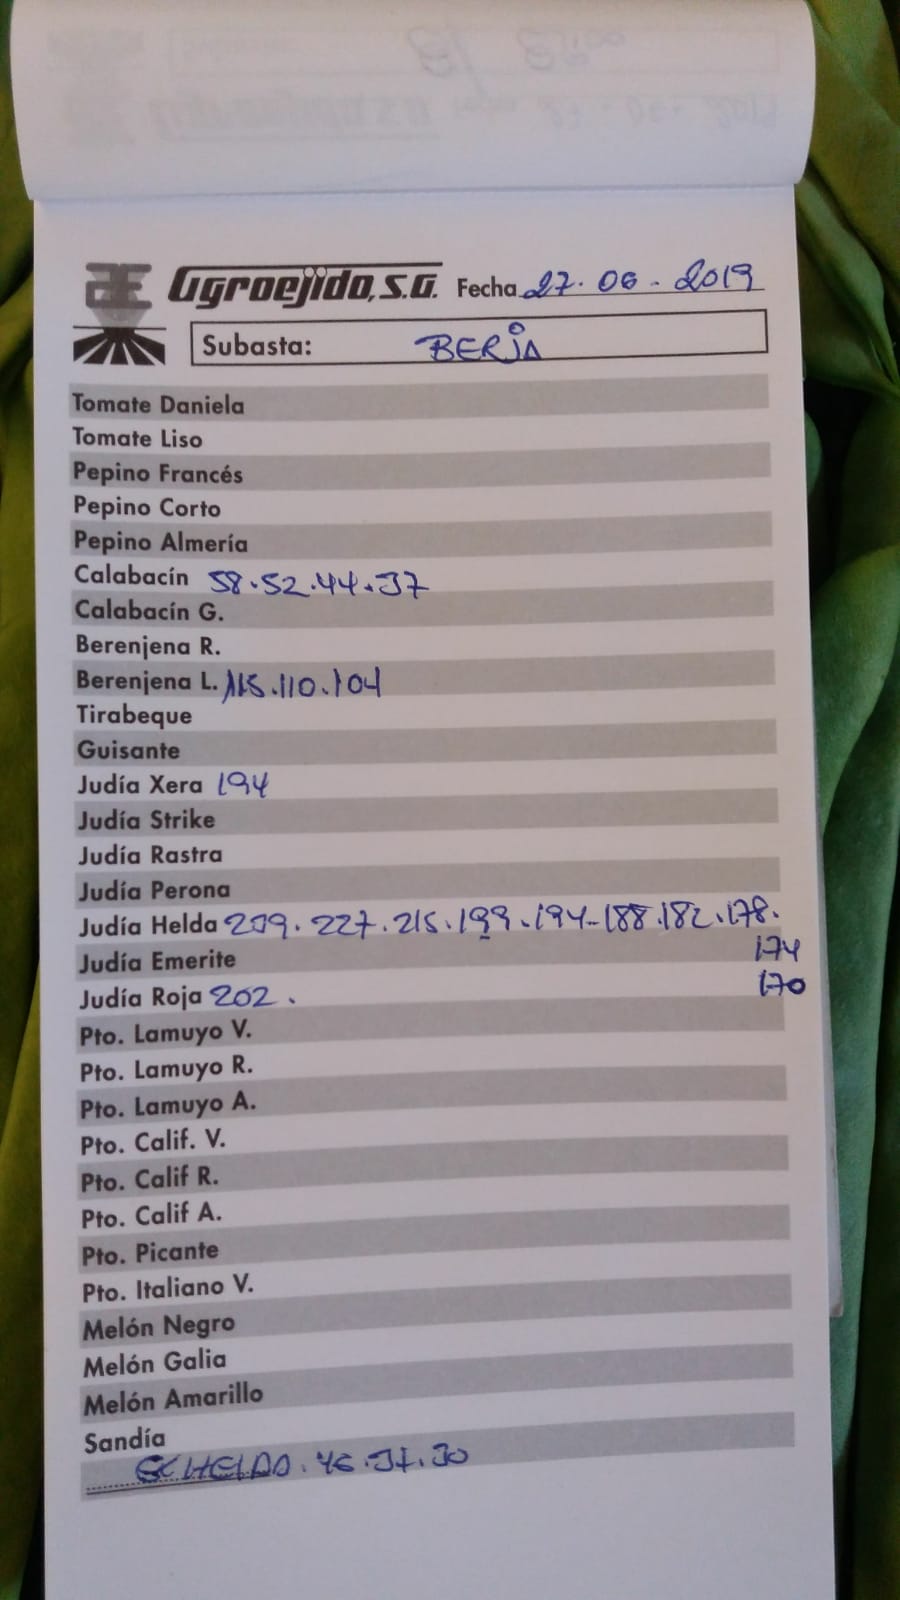 Agroejido, S.A. Fecha 27.06-2019
Subasta: BERJA
Tomate Daniela
Tomate Liso
Pepino Francés
Pepino Corto
Pepino Almería
Calabacín 58.52.44.37
Calabacín G.
Berenjena R.
Berenjena L. 115.110.104
Tirabeque
Guisante
Judía Xera 194
Judía Strike
Judía Rastra
Judía Perona
Judía Helda 239.227.215.199.194-188.182.178.
Judía Emerite 174
Judía Roja 202. 170
Pto. Lamuyo V.
Pto. Lamuyo R.
Pto. Lamuyo A.
Pto. Calif. V.
Pto. Calif R.
Pto. Calif A.
Pto. Picante
Pto. Italiano V.
Melón Negro
Melón Galia
Melón Amarillo
Sandía
HELDA.46.37.30